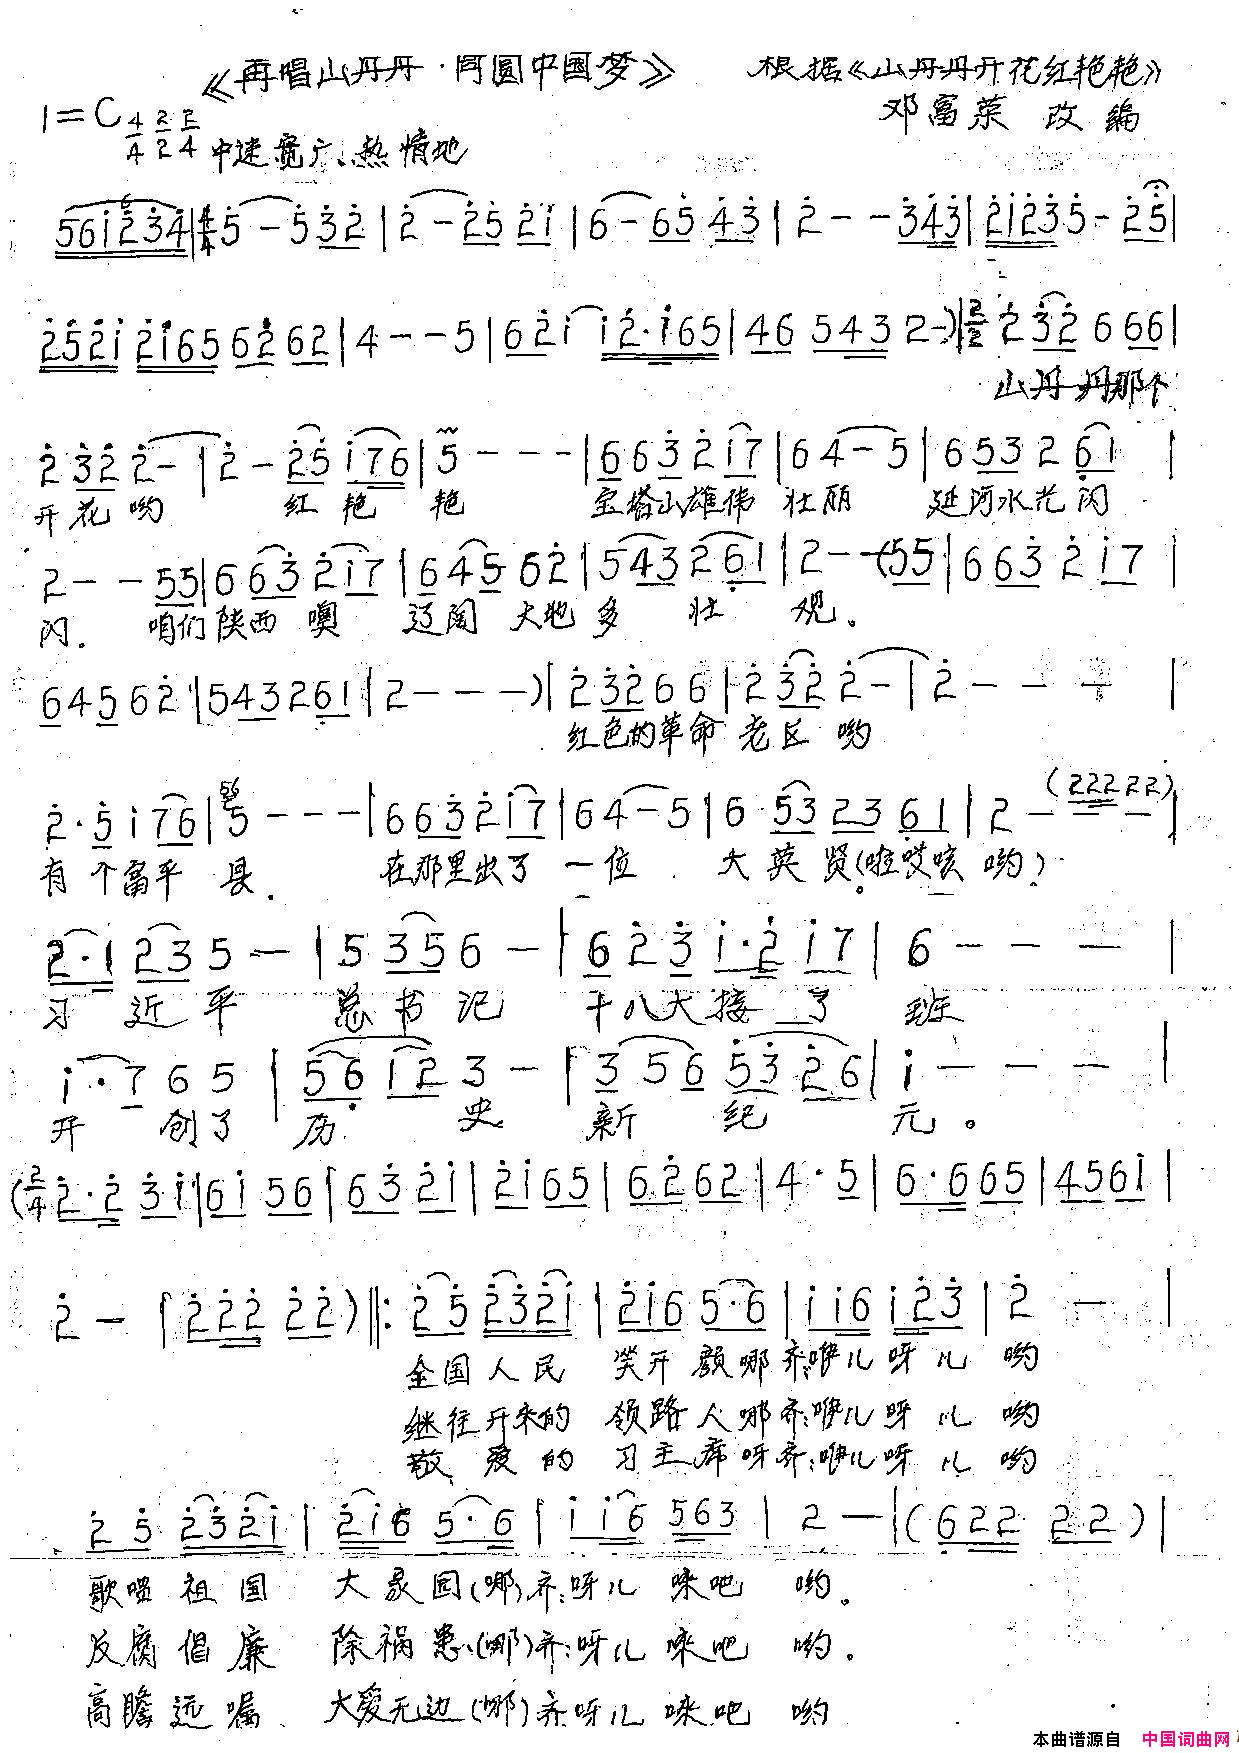 《再唱山丹丹·同圆中国梦》 根据《山丹丹开花红艳艳》
1=C 4/4 2/2 2/4 邓富荣 改编
中速宽广、热情地
561̇2̇3̇4̇ | 4/4 5̇ - 5̇ 3̇2̇ | 2̇ - 2̇5̇ 2̇1̇ | 6 - 65̇ 4̇3̇ | 2̇ - - 3̇4̇3̇ | 2̇1̇2̇3̇ 5̇ - 2̇5̇ |
2̇5̇2̇1̇ 2̇1̇65 62̇ 62 | 4 - - 5 | 62̇ 1̇ 1̇2̇·1̇65 | 46 543 2 - ) | 2/2 2̇ 3̇2̇ 6 66 |
山丹丹那个
2̇ 3̇2̇ 2̇ - | 2̇ - 2̇5̇ 1̇76 | 5 - - - | 6 63̇ 2̇ 1̇7 | 6 4 - 5 | 6 53 2 61 |
开花哟 红艳艳 宝塔山雄伟壮丽 延河水光闪
2 - - 55 | 6 63̇ 2̇ 1̇7 | 645 62̇ | 543 261 | 2 - - (55 | 6 63̇ 2̇ 1̇7 |
闪. 咱们陕西噢 辽阔大地多壮观。
645 62̇ | 543261 | 2 - - - ) | 2̇ 3̇2̇ 6 6 | 2̇ 3̇2̇ 2̇ - | 2̇ - - - |
红色的革命老区哟
2̇·5̇ 1̇ 76 | 5 - - - | 6 63̇ 2̇ 1̇7 | 6 4 - 5 | 6 53 23 61 | 2 - - - (222 22) |
有个富平县. 在那里出了一位 大英贤(啦哎咳哟)
2·1 23 5 - | 5 35 6 - | 6 2̇ 3̇ 1̇·2̇ 1̇7 | 6 - - - |
习近平 总书记 十八大接了班
1̇·7 6 5 | 56 12 3 - | 3 5 6 5̇3̇ 2̇6 | 1̇ - - - |
开创了历史新纪元。
(2/4 2̇·2̇ 3̇1̇ | 61̇ 56 | 63̇ 2̇1̇ | 2̇1̇65 | 62̇62 | 4·5 | 6·665 | 4561̇ |
2̇ - | 2̇2̇2̇ 2̇2̇) ‖: 2̇5̇ 2̇3̇2̇1̇ | 2̇1̇6 5·6 | 1̇1̇6 1̇2̇3̇ | 2̇ - |
全国人民 笑开颜哪齐:咿儿呀儿哟
继往开来的 领路人哪齐:咿儿呀儿哟
敬爱的 习主席呀齐:咿儿呀儿哟
2̇5̇ 2̇3̇2̇1̇ | 2̇1̇6 5·6 | 1̇1̇6 563 | 2 - | (622 22) |
歌唱祖国 大家园(哪)齐:呀儿来吧哟。
反腐倡廉 除祸患(哪)齐:呀儿来吧哟.
高瞻远嘱 大爱无边(哪)齐:呀儿来吧哟
本曲谱源自 中国词曲网